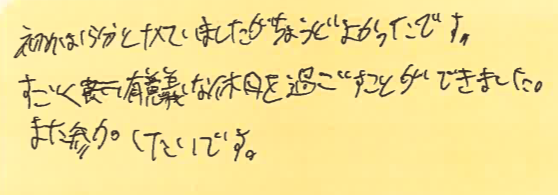 初めは多分とお思いましたがちょうどよかったです。
すごく有意義な休日を過ごすことができました。
また参加したいです。